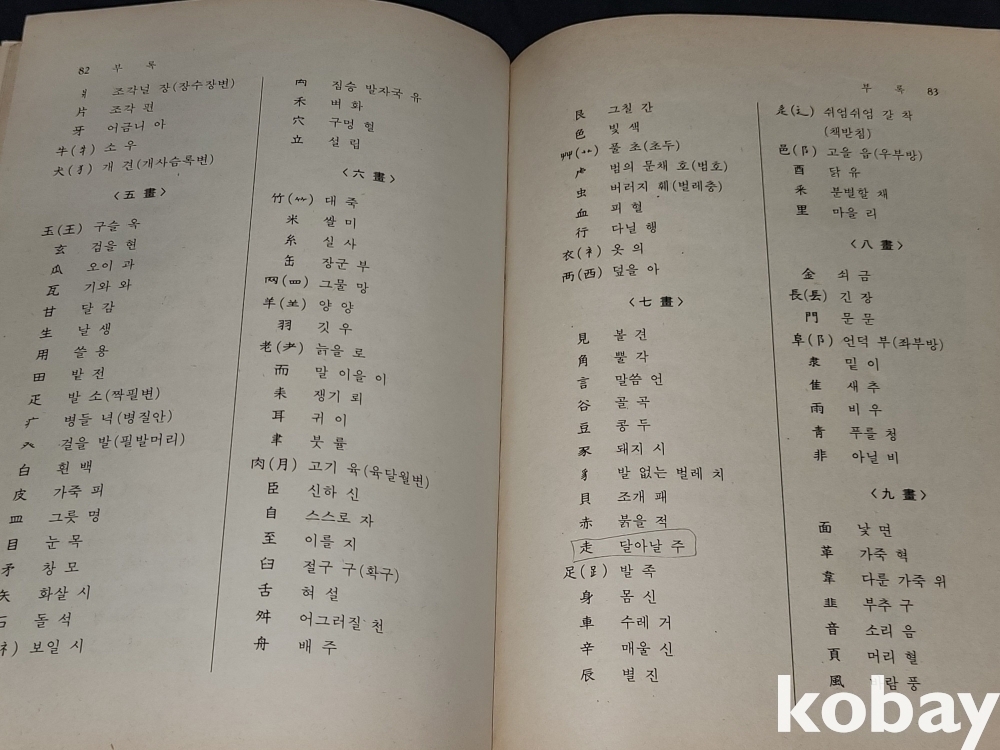 82 부 록
爿 조각널 장(장수장변)
片 조각 편
牙 어금니 아
牛(牜) 소 우
犬(犭) 개 견(개사슴록변)
〈五 畫〉
玉(王) 구슬 옥
玄 검을 현
瓜 오이 과
瓦 기와 와
甘 달 감
生 날 생
用 쓸 용
田 밭 전
疋 발 소(짝필변)
疒 병들 녁(병질안)
癶 걸을 발(필발머리)
白 흰 백
皮 가죽 피
皿 그릇 명
目 눈 목
矛 창 모
矢 화살 시
石 돌 석
礻) 보일 시
禸 짐승 발자국 유
禾 벼 화
穴 구멍 혈
立 설 립
〈六 畫〉
竹(⺮) 대 죽
米 쌀 미
糸 실 사
缶 장군 부
网(罒) 그물 망
羊(⺷) 양 양
羽 깃 우
老(耂) 늙을 로
而 말 이을 이
耒 쟁기 뢰
耳 귀 이
聿 붓 률
肉(月) 고기 육(육달월변)
臣 신하 신
自 스스로 자
至 이를 지
臼 절구 구(확구)
舌 혀 설
舛 어그러질 천
舟 배 주
부 록 83
艮 그칠 간
色 빛 색
艸(艹) 풀 초(초두)
虍 범의 문채 호(범호)
虫 버러지 훼(벌레충)
血 피 혈
行 다닐 행
衣(衤) 옷 의
襾(西) 덮을 아
〈七 畫〉
見 볼 견
角 뿔 각
言 말씀 언
谷 골 곡
豆 콩 두
豕 돼지 시
豸 발 없는 벌레 치
貝 조개 패
赤 붉을 적
走 달아날 주
足(⻊) 발 족
身 몸 신
車 수레 거
辛 매울 신
辰 별 진
辵(辶) 쉬엄쉬엄 갈 착
(책받침)
邑(阝) 고을 읍(우부방)
酉 닭 유
釆 분별할 채
里 마을 리
〈八 畫〉
金 쇠 금
長(镸) 긴 장
門 문 문
阜(阝) 언덕 부(좌부방)
隶 밑 이
隹 새 추
雨 비 우
青 푸를 청
非 아닐 비
〈九 畫〉
面 낯 면
革 가죽 혁
韋 다룬 가죽 위
韭 부추 구
音 소리 음
頁 머리 혈
風 바람 풍
kobay